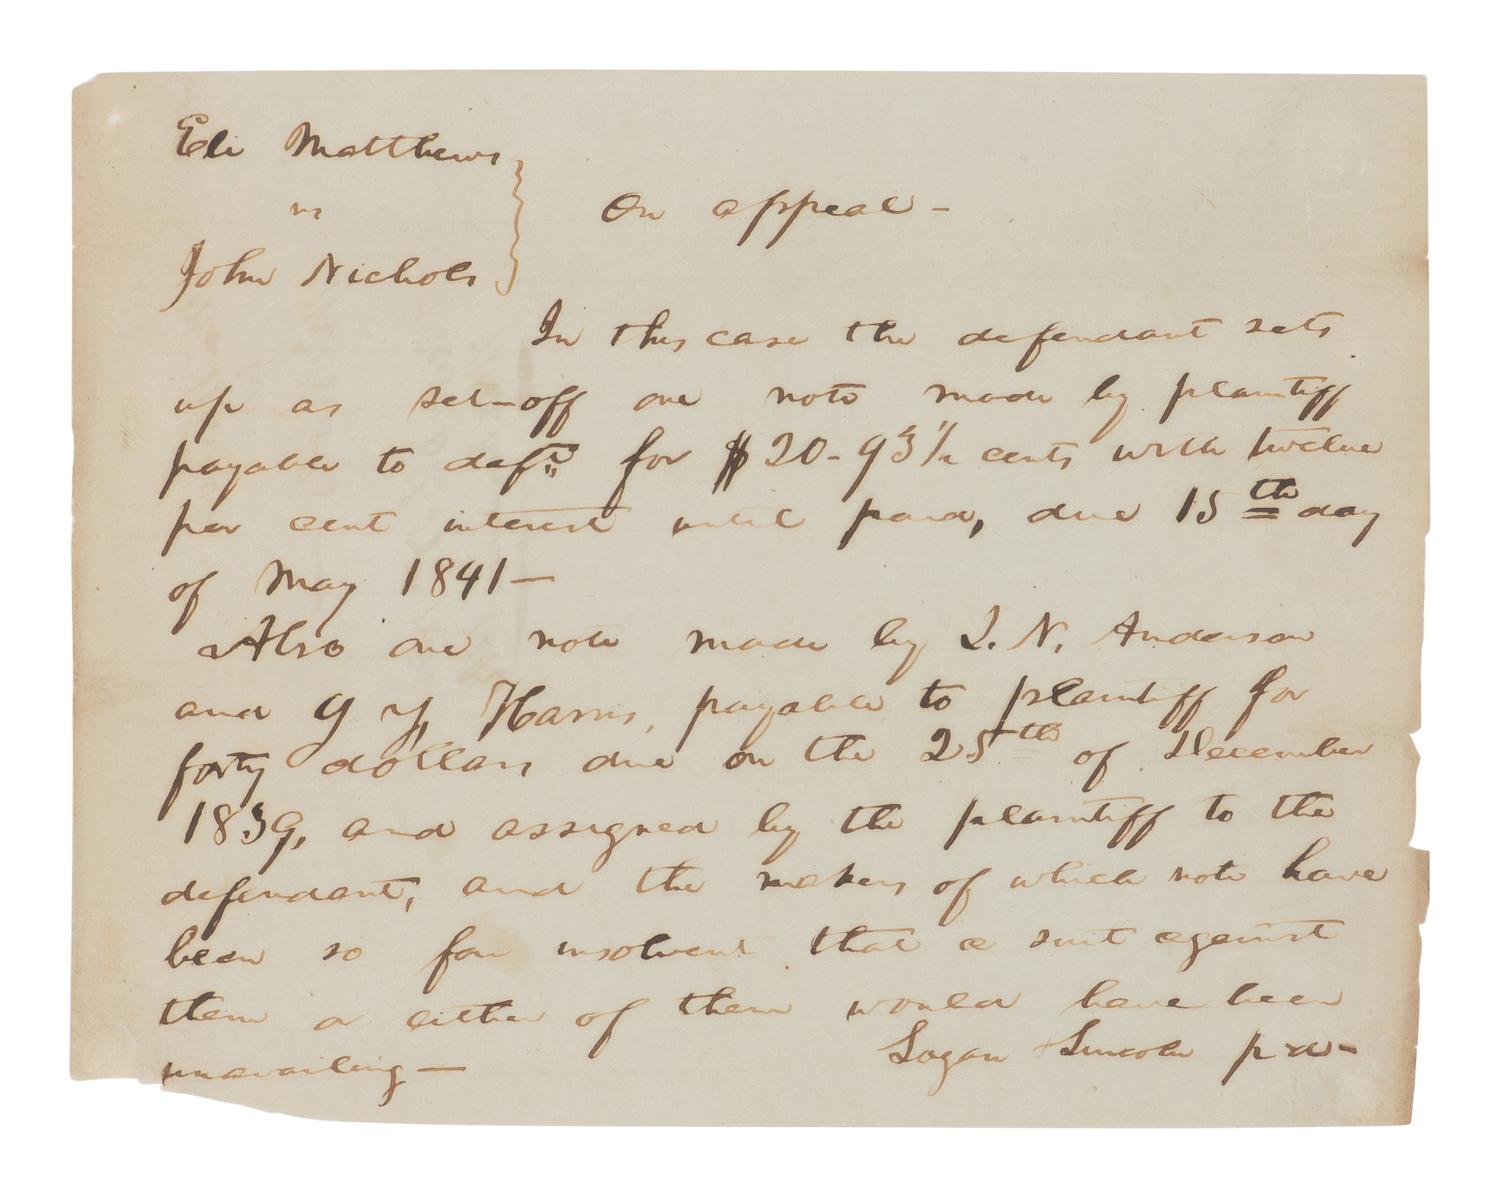 Eli Matthews
vs
On appeal –
John Nichols
In this case the defendant sets
up as set-off one note made by plaintiff
payable to deft. for $20-93½ cents with twelve
per cent interest until paid, due 15th day
of May 1841 –
Also one note made by I. N. Anderson
and G Y, Harris, payable to plaintiff for
forty dollars due on the 25th of December
1839, and assigned by the plaintiff to the
defendant, and the makers of which note have
been so far insolvent that a suit against
them or either of them would have been
unavailing –
Logan & Lincoln pd–